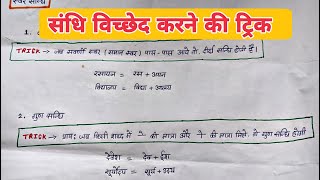 स्वर सन्धि
संधि विच्छेद करने की ट्रिक
1.
TRICK → जब सवर्णी स्वर (समान स्वर) पास-पास आये तो, दीर्घ सन्धि होती है।
रसायन = रस + अयन
विद्यालय = विद्या + आलय
2. गुण सन्धि
TRICK → प्रायः जब किसी शब्द में े की मात्रा और ो की मात्रा मिले, तो गुण सन्धि होगी
देवेश = देव + ईश
सूर्योदय = सूर्य + उदय